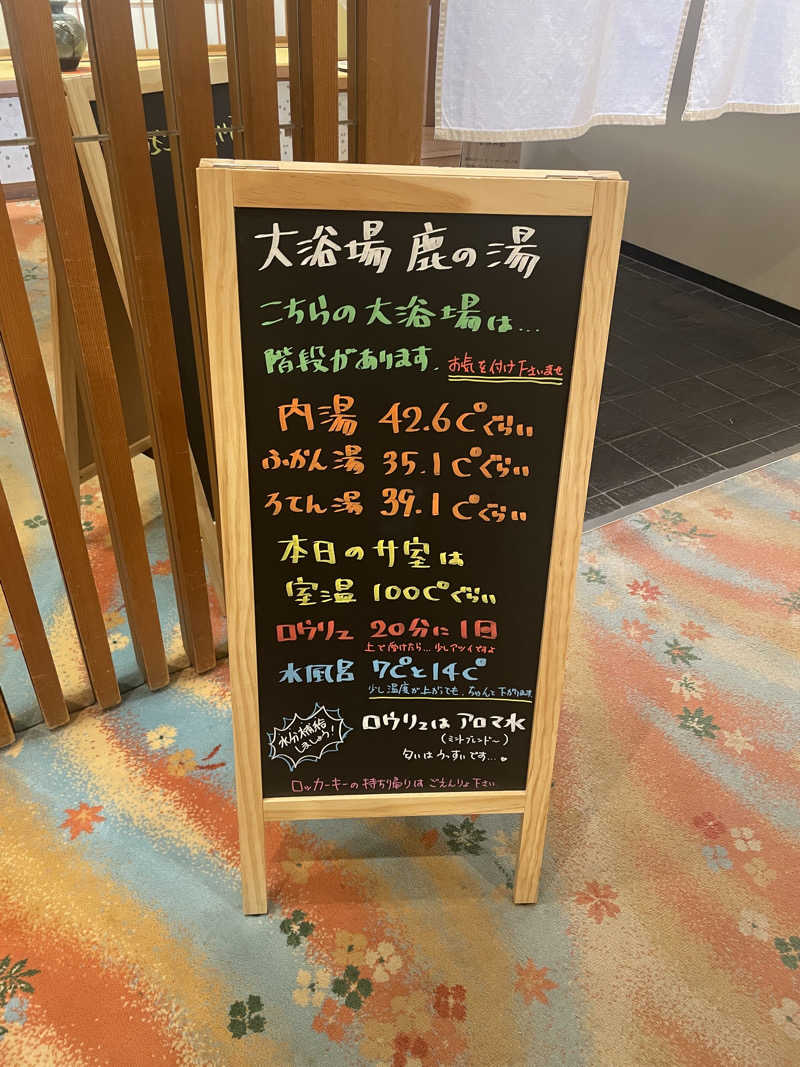 大浴場 鹿の湯
こちらの大浴場は...
階段があります. お気を付け下さいませ
内湯 42.6℃ぐらい
ふかん湯 35.1℃ぐらい
ろてん湯 39.1℃ぐらい
本日のサ室は
室温 100℃ぐらい
ロウリュ 20分に1回
上で受けたら...少しアツイですよ
水風呂 7℃と14℃
少し温度が上がっても、ちゃんと下がります
水分補給しましょう!
ロウリュはアロマ水
(ミントブレンド〜)
匂いはうっすいです...
ロッカーキーの持ち帰りはごえんりょ下さい